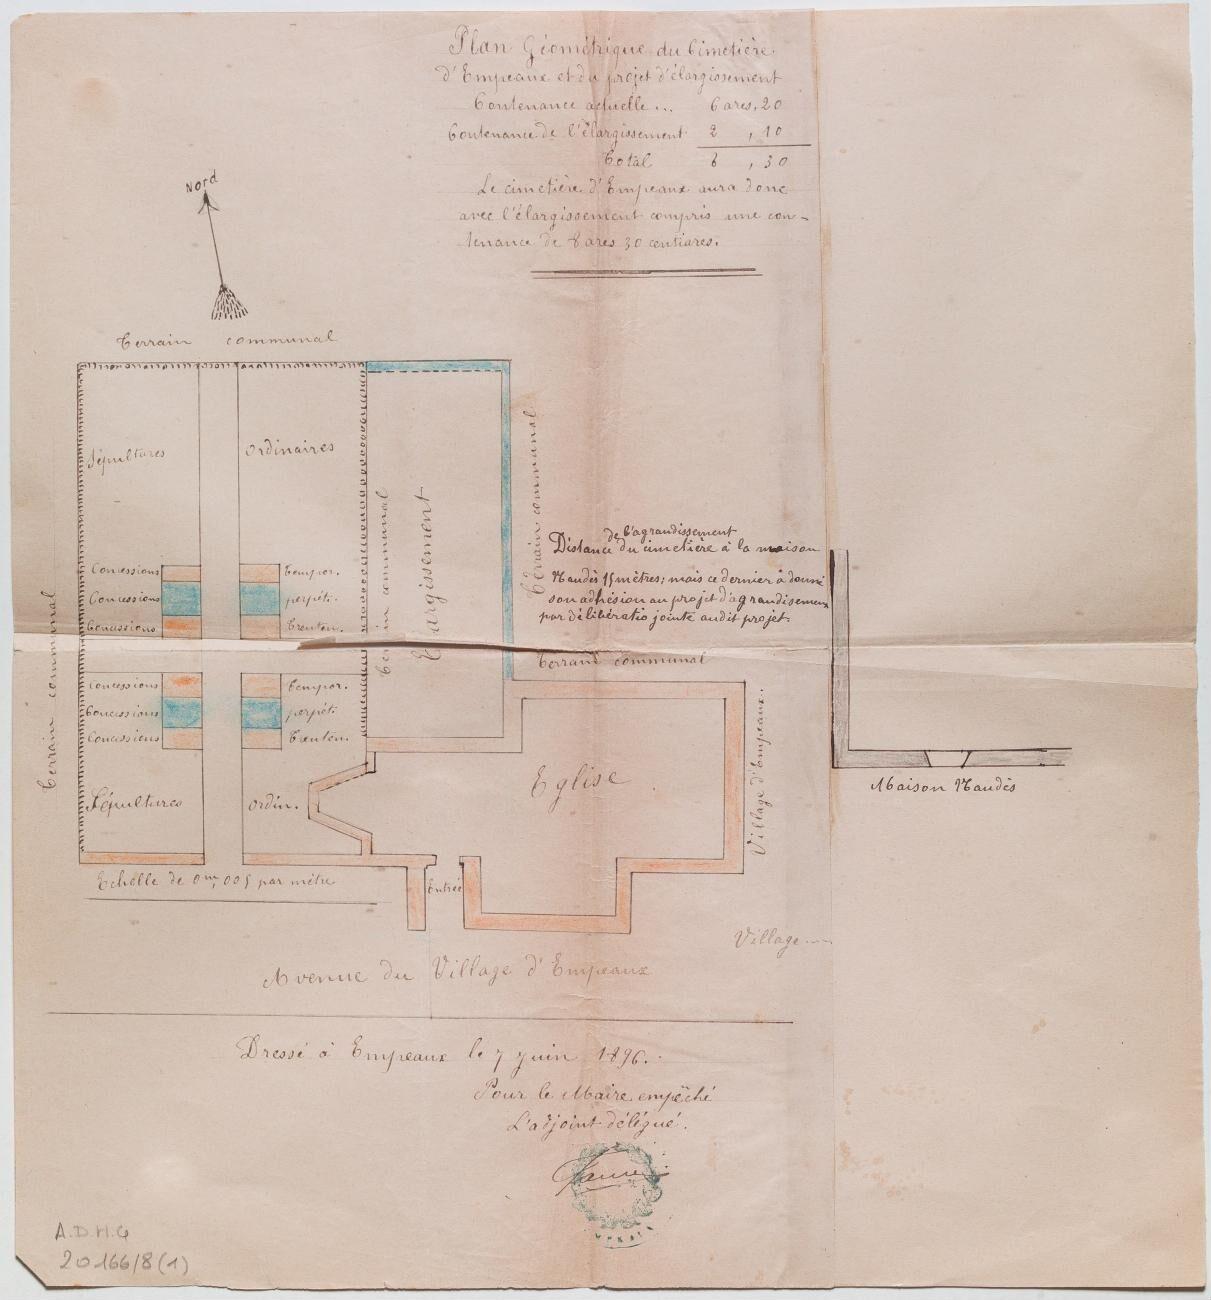 Plan Géométrique du Cimetière
d'Empeaux et du projet d'élargissement
Contenance actuelle... 6 ares, 20
Contenance de l'élargissement 2 , 10
Total 8 , 30
Le cimetière d'Empeaux aura donc
avec l'élargissement compris une con-
tenance de 8 ares 30 centiares.
Nord
Terrain communal
Sépultures ordinaires
Terrain communal
Elargissement
Terrain communal
de l'agrandissement
Distance du cimetière à la maison
Naudès 15 mètres; mais ce dernier à donné
son adhésion au projet d'agrandissement
par délibératio jointe audit projet.
Concessions Tempor.
Concessions perpét.
Concessions Trenten.
Terrain communal
Terrain communal
Concessions Tempor.
Concessions perpét.
Concessions Trenten.
Eglise
Village d'Empeaux.
Maison Naudès
Sépultures ordin.
Echelle de 0m,005 par mètre
Entrée
Village
Avenue du Village d'Empeaux
Dressé à Empeaux le 7 juin 1896.
Pour le Maire empêché
L'adjoint délégué.
A.D.H.G
20166/8(1)